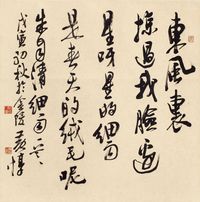 東風裏
掠過我臉邊
星呀星的细雨
是春天的绒毛呢
朱自清细雨一
戊寅初秋於金陵黄惇